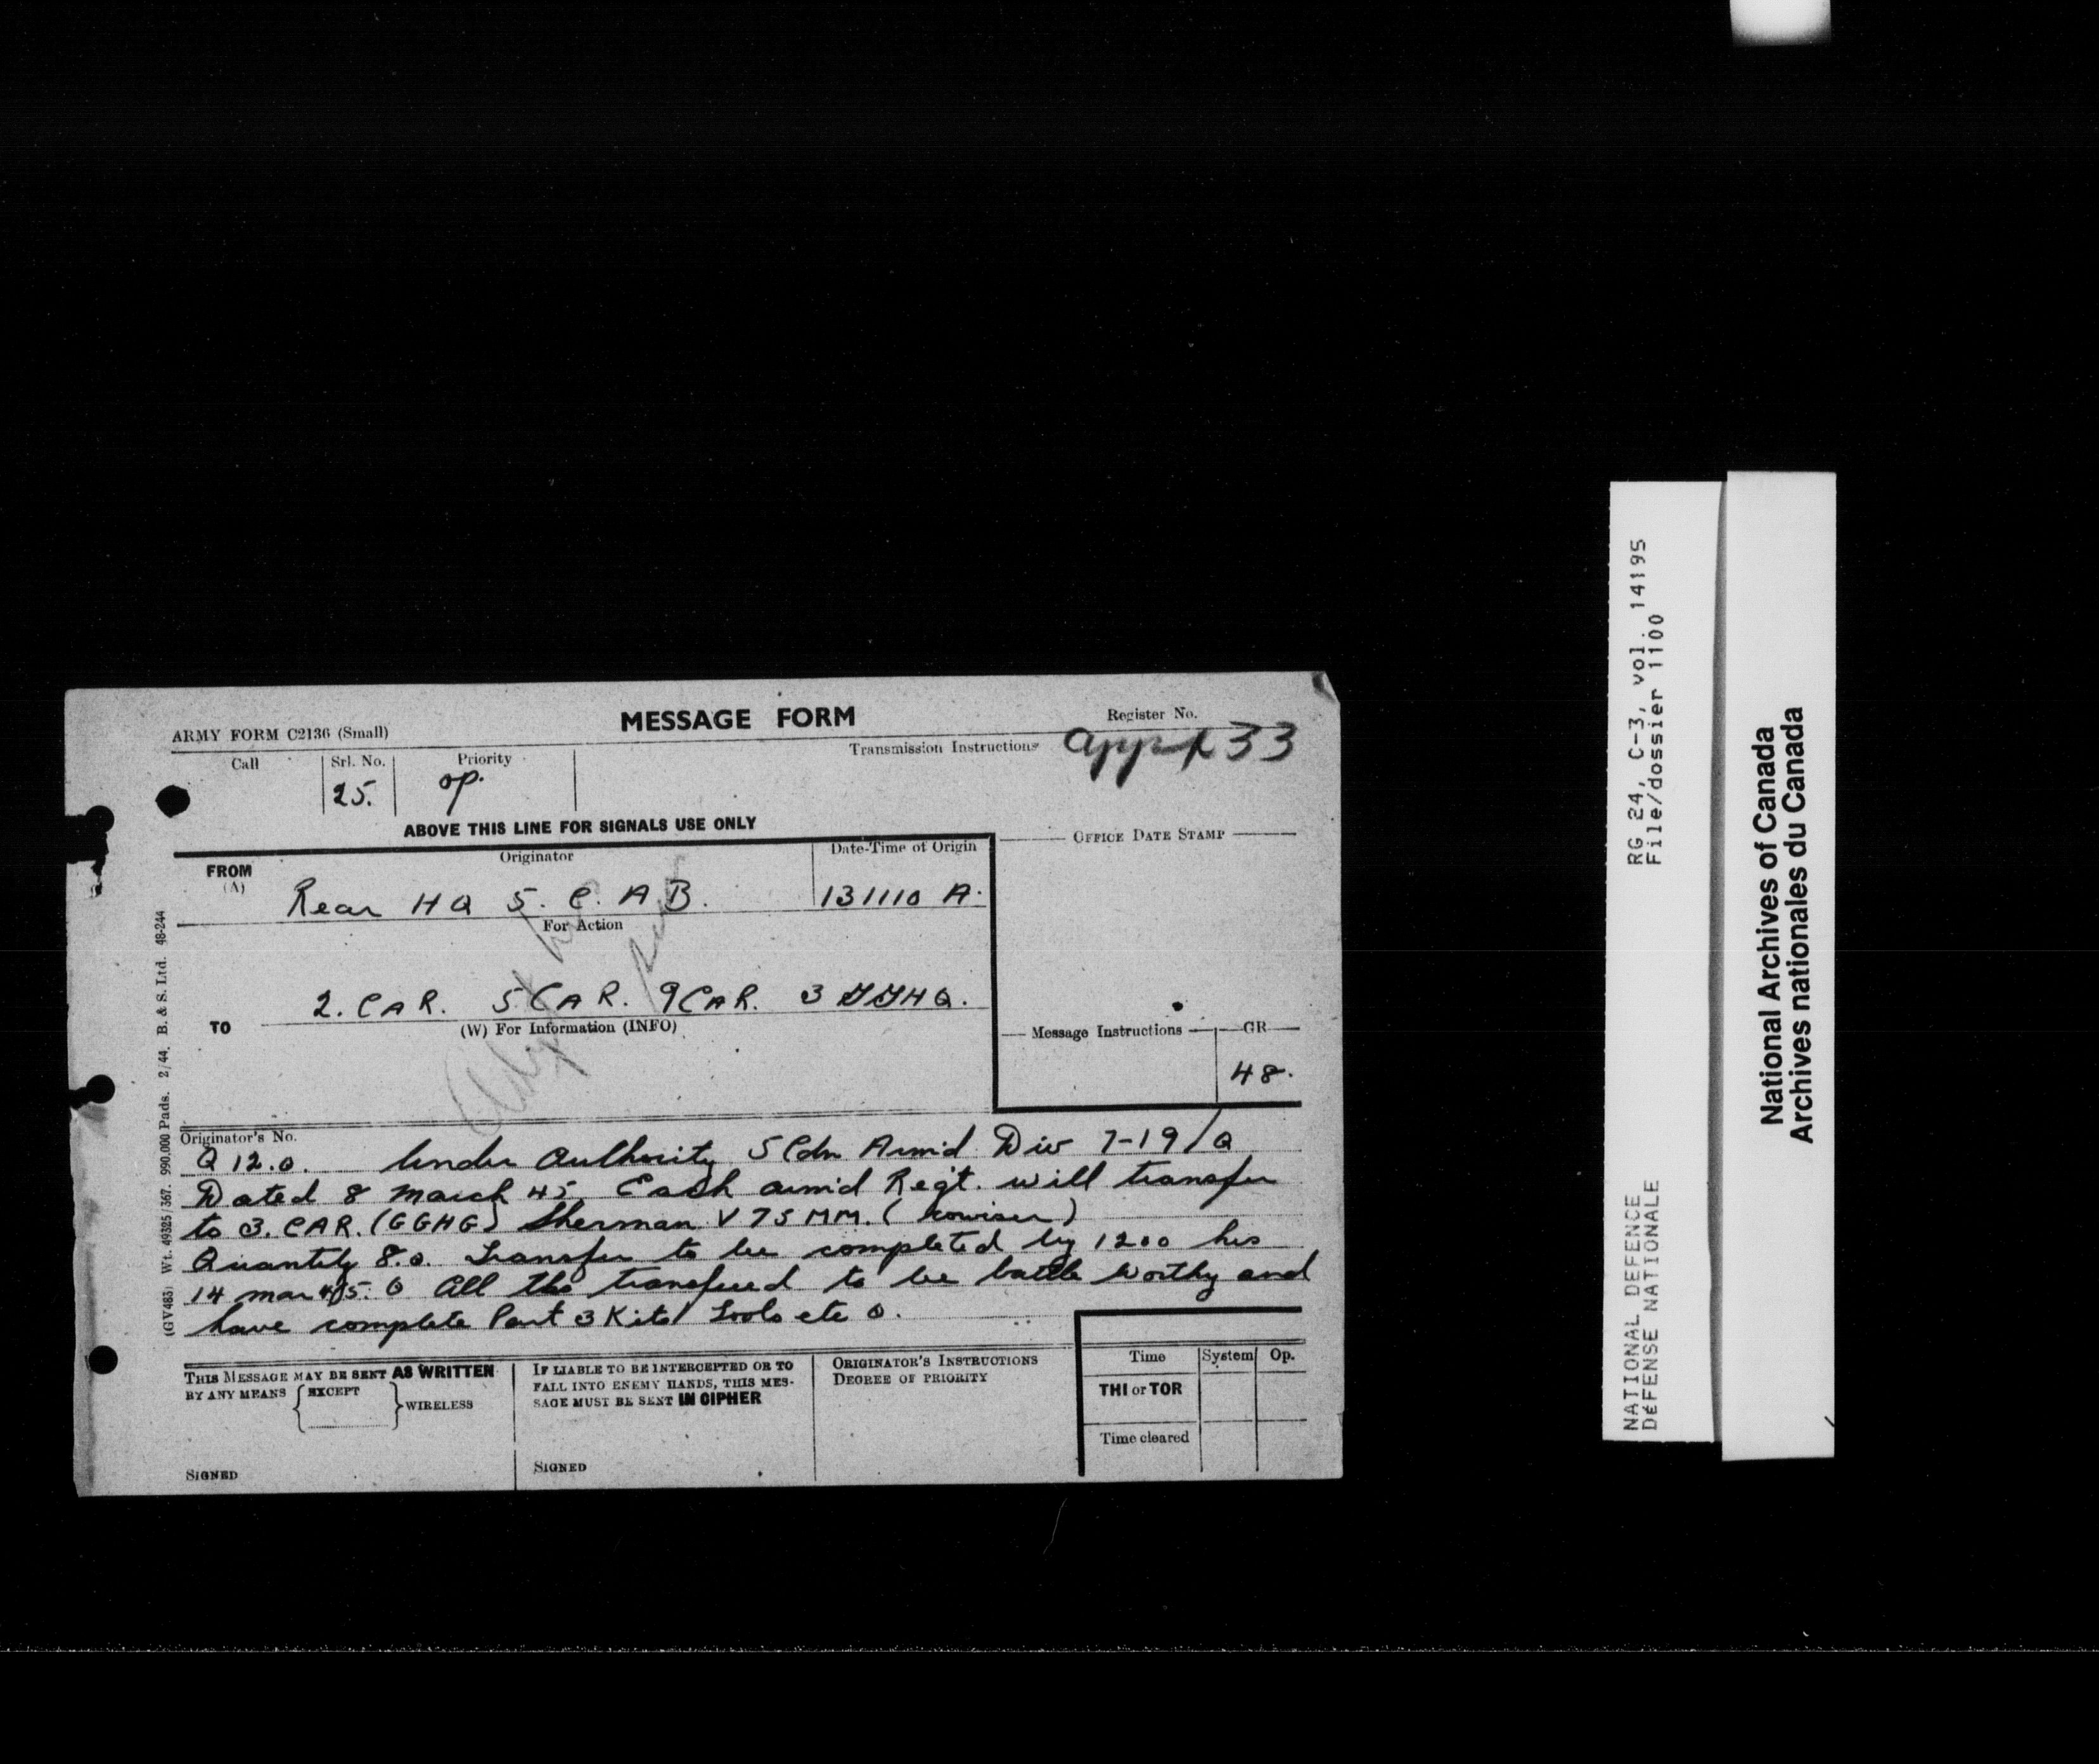 ARMY FORM C2136 (Small)
MESSAGE FORM
Register No.
Call
Srl. No.
Priority
Transmission Instructions
appx 33
25.
op.
ABOVE THIS LINE FOR SIGNALS USE ONLY
OFFICE DATE STAMP
FROM
(A)
Originator
Date-Time of Origin
Rear HQ 5. C. A B.
131110 A.
For Action
2. CAR. 5 CAR. 9 CAR. 3 GGHG.
TO
(W) For Information (INFO)
Message Instructions
GR
48.
Originator's No.
Q 12.0. Under Authority 5 Cdn Armd Div 7-19/Q
Dated 8 March 45. Each armd Regt. will transfer
to 3. CAR. (GGHG) Sherman V 75 MM. (
Quantity 8.0. Transfer to be completed by 1200 hrs
14 mar 45. O All tks transfered to be battle worthy and
have complete Part 3 Kits Tools etc O.
THIS MESSAGE MAY BE SENT AS WRITTEN
BY ANY MEANS EXCEPT WIRELESS
SIGNED
IF LIABLE TO BE INTERCEPTED OR TO
FALL INTO ENEMY HANDS, THIS MES-
SAGE MUST BE SENT IN CIPHER
SIGNED
ORIGINATOR'S INSTRUCTIONS
DEGREE OF PRIORITY
Time
System
Op.
THI or TOR
Time cleared
(GV483) Wt. 49325/367. 990,000 Pads. 2/44. B. & S. Ltd. 48-244
NATIONAL DEFENCE
DÉFENSE NATIONALE
RG 24, C-3, vol. 14195
File/dossier 1100
National Archives of Canada
Archives nationales du Canada